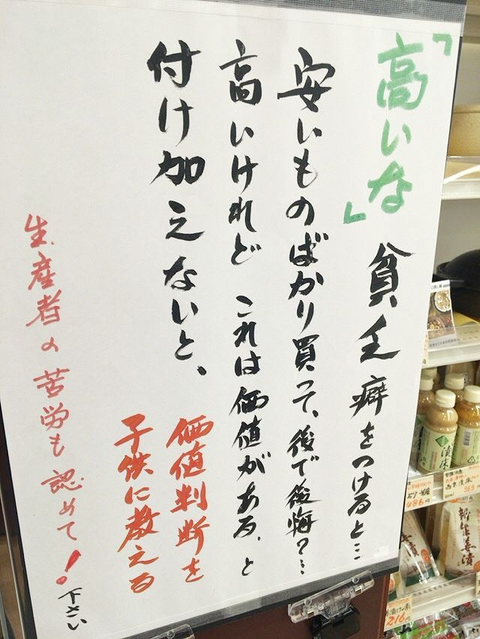 「高いな」貧乏癖をつけると…
安いものばかり買って、後で後悔?…
高いけれど これは価値がある、と
付け加えないと、
価値判断を
子供に教える
生産者の苦労も認めて!下さい
216